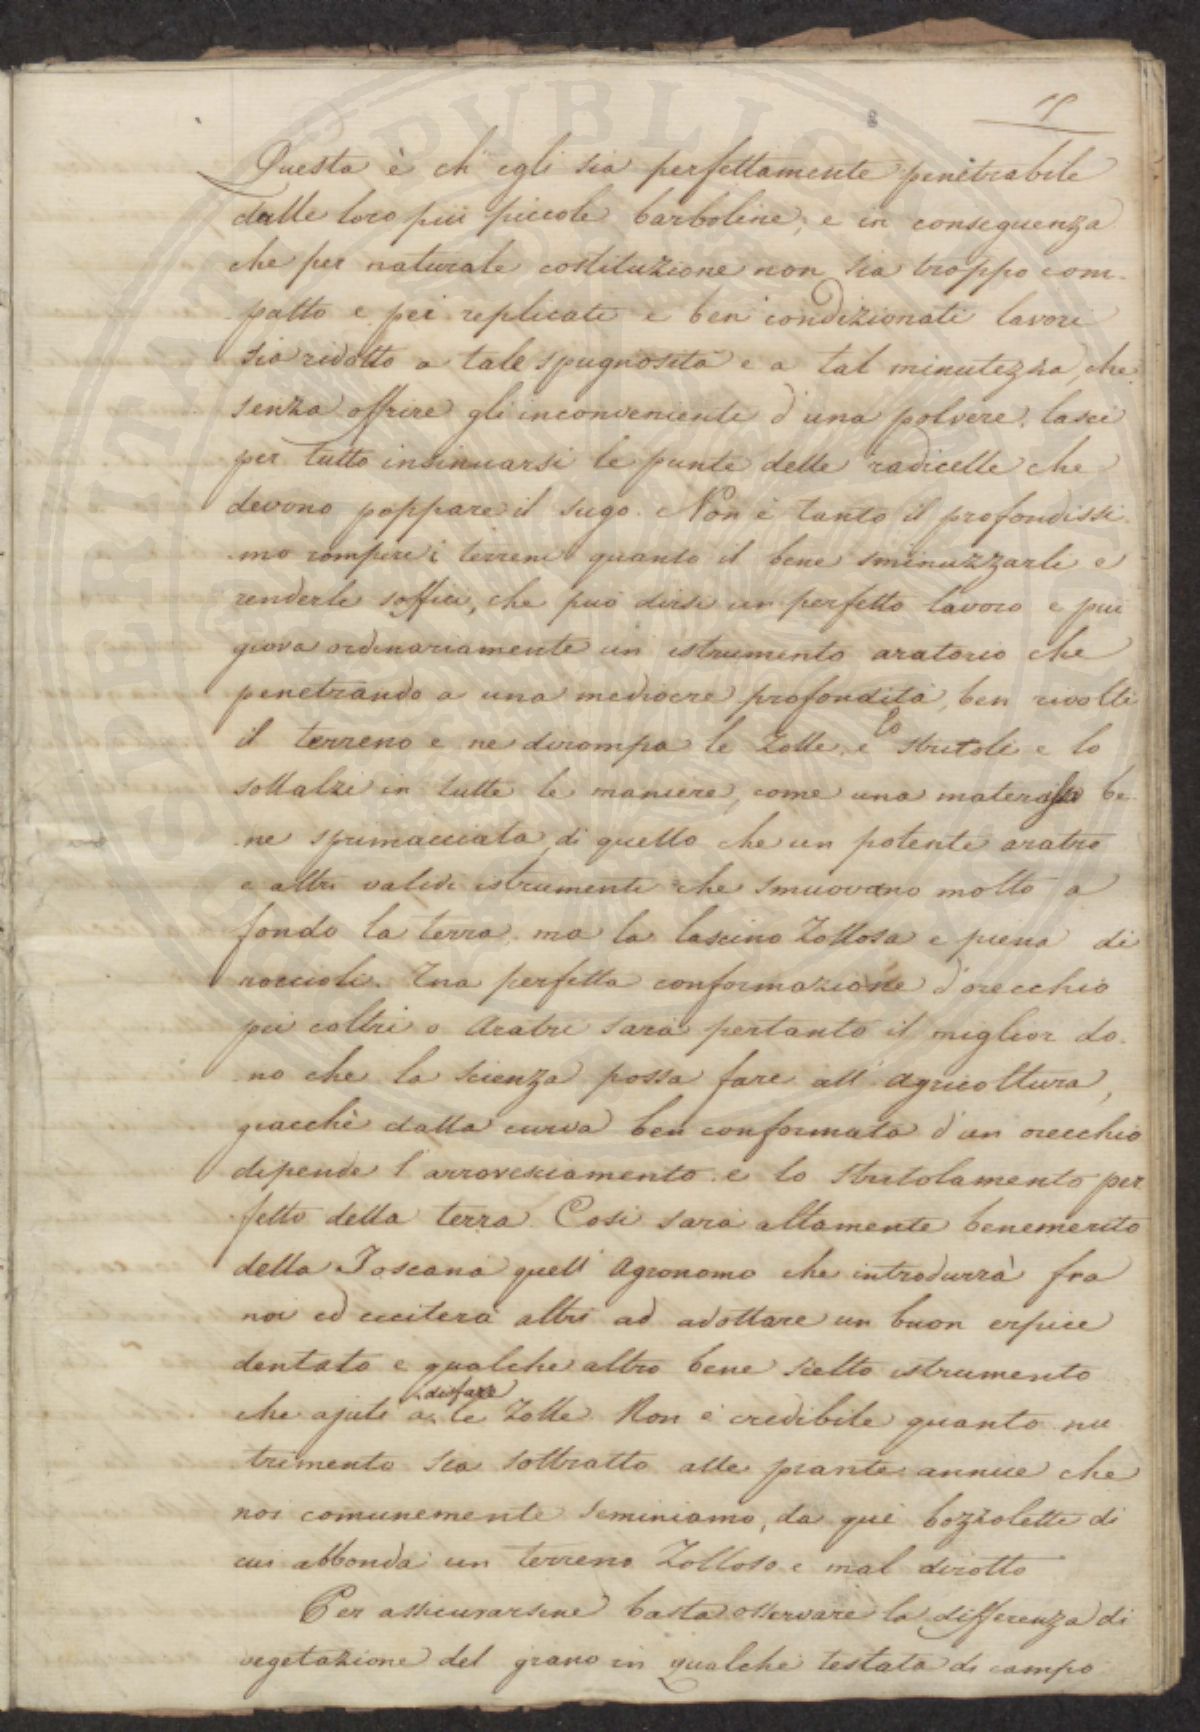 Questa è ch' egli sia perfettamente penetrabile
dalle loro più piccole barboline, e in conseguenza
che per naturale costituzione non sia troppo com-
patto e pei replicati e ben condizionati lavori
sia ridotto a tale spugnosità e a tal minutezza, che
senza offrire gli inconvenienti d' una polvere, lasci
per tutto insinuarsi le punte delle radicelle che
devono poppare il sugo. Non è tanto il profondissi-
mo rompere i terreni quanto il bene sminuzzarli e
renderli soffici, che può dirsi un perfetto lavoro e più
giova ordinariamente un istrumento aratorio che
penetrando a una mediocre profondità, ben rivolti
il terreno e ne dirompa le Zolle, e lo stritoli e lo
sollalzi in tutte le maniere, come una materassa be-
ne sprimacciata, di quello che un potente aratro
e altri validi istrumenti che smuovano molto a
fondo la terra, ma la lascino Zollosa e piena di
noccioli. Una perfetta conformazione d' orecchio
pei coltri o Aratri sarà pertanto il miglior do-
no che la scienza possa fare all' Agricoltura,
giacchè dalla curva ben conformata d' un orecchio
dipende l' arrovesciamento e lo stritolamento per
fetto della terra. Così sarà altamente benemerito
della Toscana quell' Agronomo che introdurrà fra
noi ed ecciterà altri ad adottare un buon erpice
dentato e qualche altro bene scelto istrumento
che ajuti a disfare le Zolle. Non è credibile quanto nu
trimento sia sottratto alle piante annue che
noi comunemente seminiamo, da quei bozzolette di
cui abbonda un terreno Zolloso e mal dirotto
Per assicurarsene basta osservare la differenza di
vegetazione del grano in qualche testata di campo